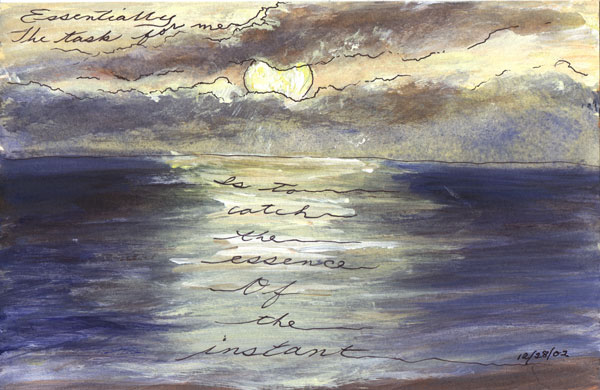 Essentially
The task for me
Is to
catch
the
essence
Of
the
instant
12/28/02